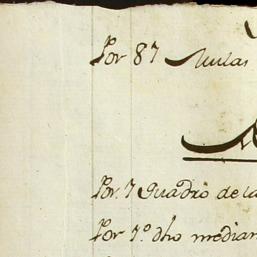 Por 87 Mulas
Por 7 quadro de la
Por 7º dho median